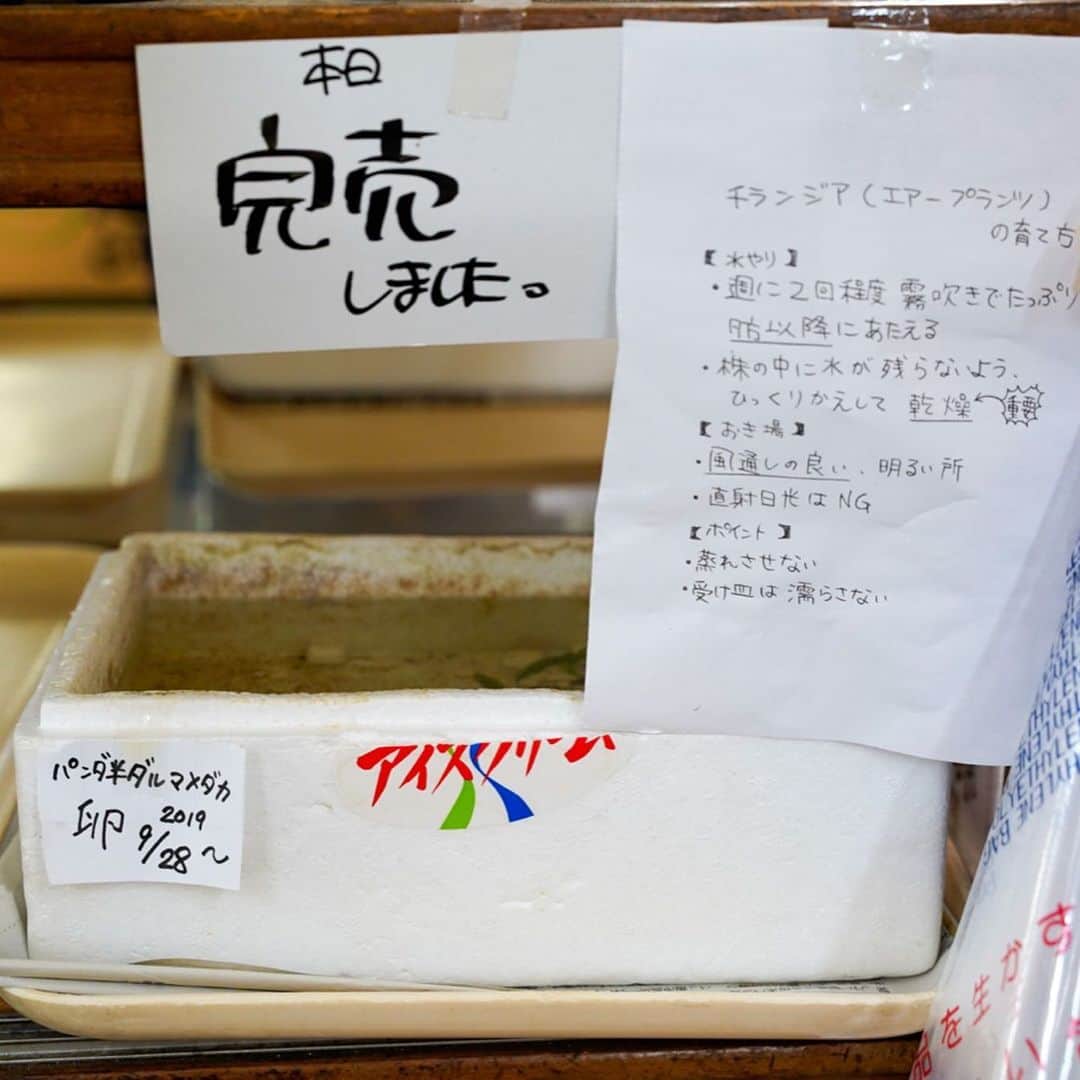 本日
完売
しました。
チランジア(エアープランツ)
の育て方
【水やり】
・週に2回程度 霧吹きでたっぷり
夕方以降にあたえる
・株の中に水が残らないよう、
ひっくりかえして 乾燥 ← 重要
【おき場】
・風通しの良い、明るい所
・直射日光はNG
【ポイント】
・蒸れさせない
・受け皿は濡らさない
アイスクリーム
パンダ半ダルマメダカ
卵 2019
9/28～
HYLENE BAG
品を生かす